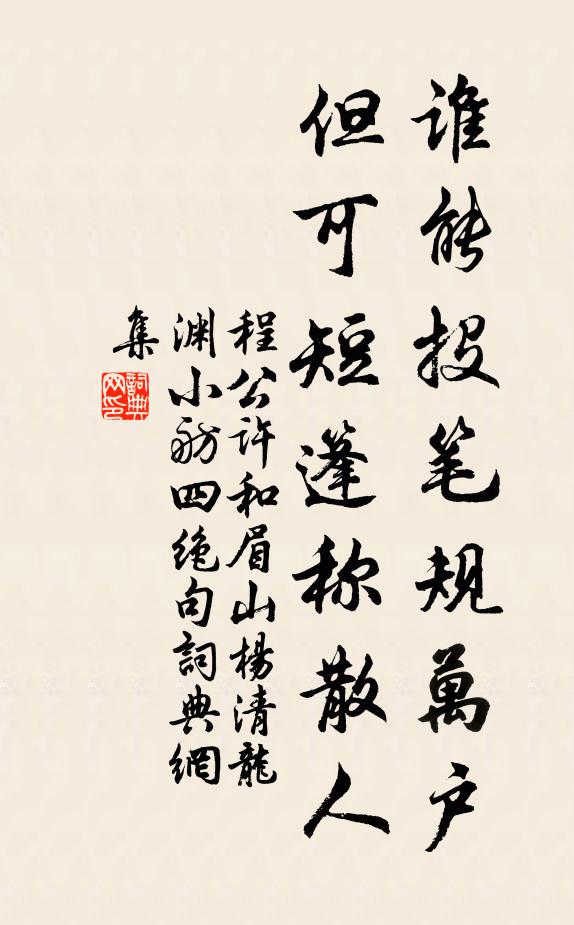 谁能投笔规萬户
但可短篷称散人
程公许和眉山楊清龍
渊小舫四绝句詞典網
集
詞典网印